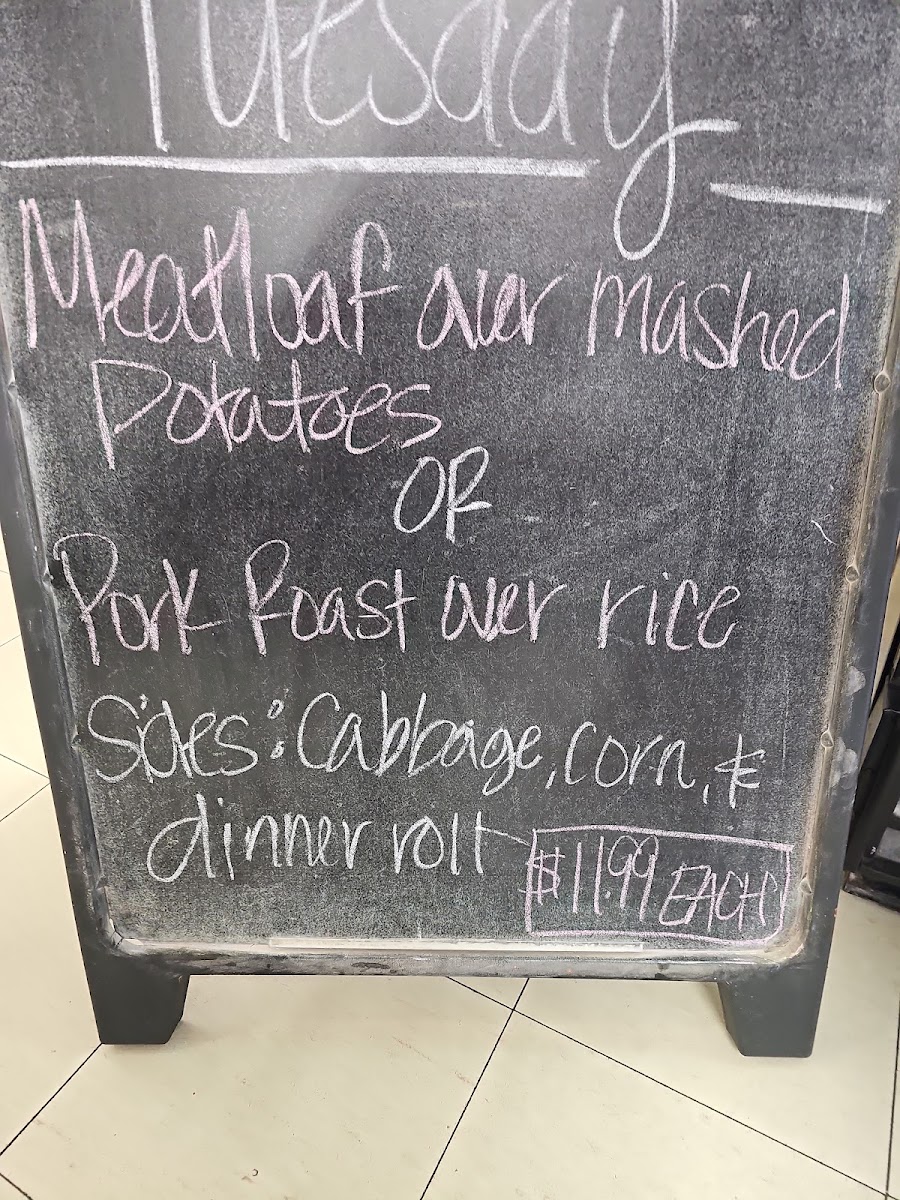 Tuesday
Meatloaf over mashed
Potatoes
OR
Pork Roast over rice
Sides: Cabbage, corn, &
dinner roll
$11.99 EACH